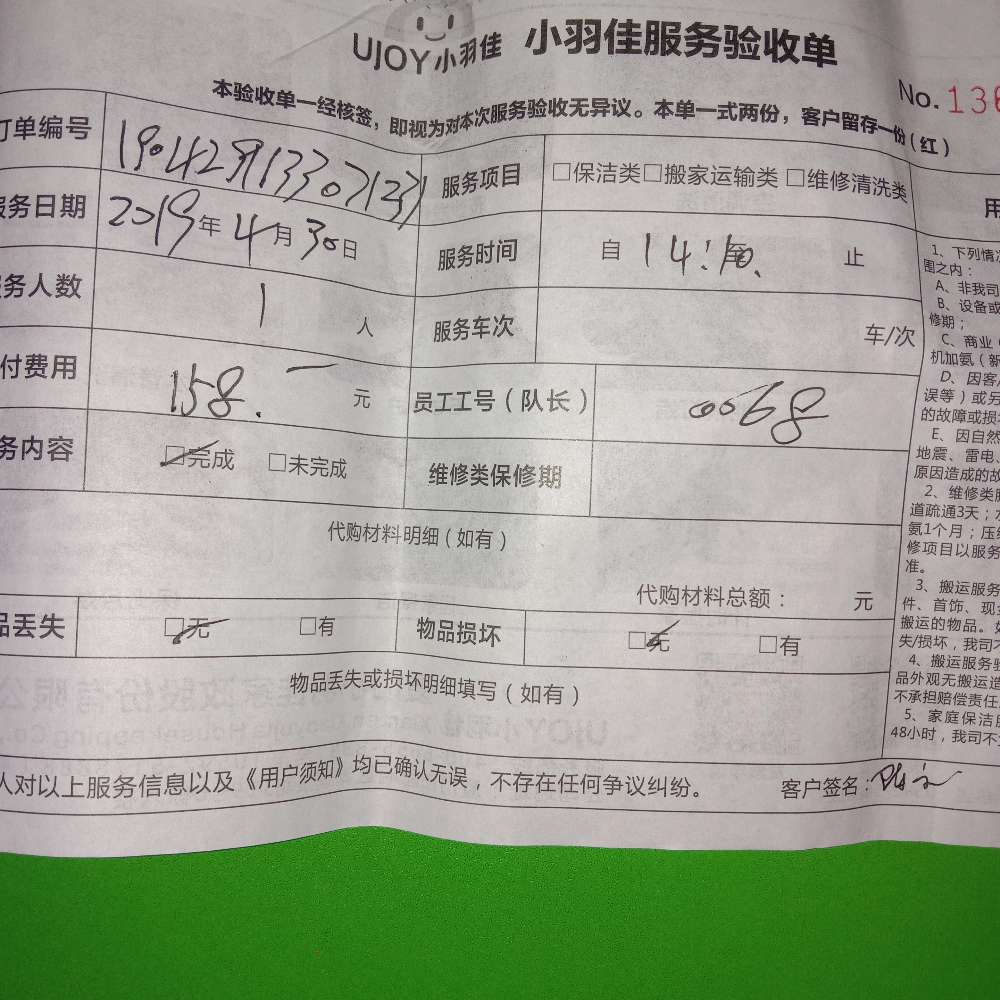 UJOY小羽佳 小羽佳服务验收单
No. 13
本验收单一经核签，即视为对本次服务验收无异议。本单一式两份，客户留存一份（红）
订单编号 服务项目 □保洁类□搬家运输类 □维修清洗类
服务日期 2019年 4月 30日 服务时间 自 14:10. 至 止
服务人数 1 人 服务车次 车/次
付费用 158. 一 元 员工工号（队长） 0068
务内容 ☑完成 □未完成 维修类保修期
代购材料明细(如有)
代购材料总额： 元
品丢失 ☑无 □有 物品损坏 ☑无 □有
物品丢失或损坏明细填写(如有)
人对以上服务信息以及《用户须知》均已确认无误，不存在任何争议纠纷。 客户签名：
用
1、下列情
围之内：
A、非我司
B、设备或
修期；
C、商业（
机加氨（新
D、因客
误等）或另
的故障或损
E、因自然
地震、雷电、
原因造成的故
2、维修类
道疏通3天；
氨1个月；压
修项目以服务
准。
3、搬运服务
件、首饰、现金
搬运的物品。如
失/损坏，我司不
4、搬运服务
品外观无搬运
不承担赔偿责任
5、家庭保洁
48小时，我司不